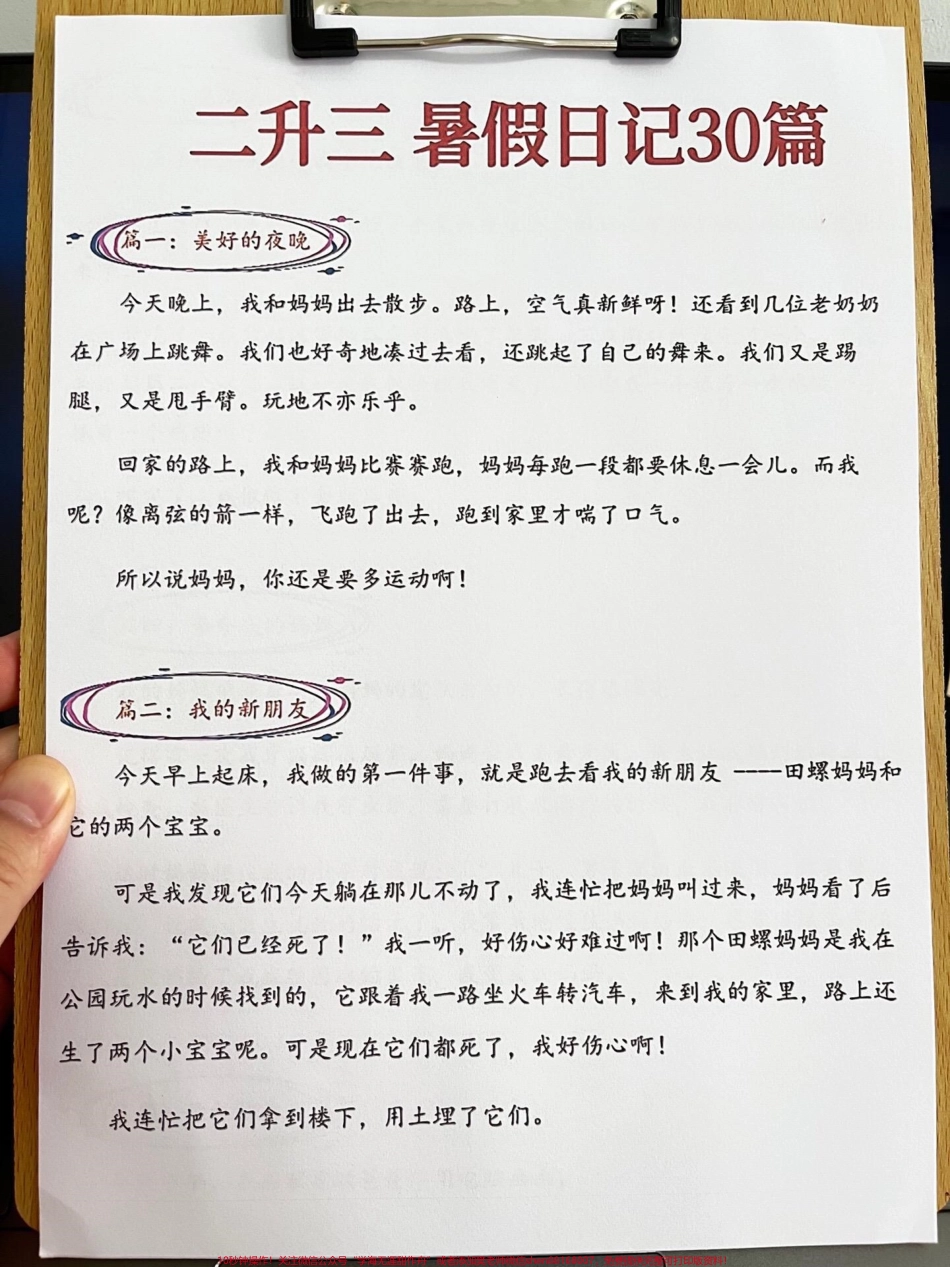 二升三 暑假日记30篇
篇一：美好的夜晚
今天晚上，我和妈妈出去散步。路上，空气真新鲜呀！还看到几位老奶奶
在广场上跳舞。我们也好奇地凑过去看，还跳起了自己的舞来。我们又是踢
腿，又是甩手臂。玩地不亦乐乎。
回家的路上，我和妈妈比赛赛跑，妈妈每跑一段都要休息一会儿。而我
呢？像离弦的箭一样，飞跑了出去，跑到家里才喘了口气。
所以说妈妈，你还是要多运动啊！
篇二：我的新朋友
今天早上起床，我做的第一件事，就是跑去看我的新朋友 ----田螺妈妈和
它的两个宝宝。
可是我发现它们今天躺在那儿不动了，我连忙把妈妈叫过来，妈妈看了后
告诉我：“它们已经死了！”我一听，好伤心好难过啊！那个田螺妈妈是我在
公园玩水的时候找到的，它跟着我一路坐火车转汽车，来到我的家里，路上还
生了两个小宝宝呢。可是现在它们都死了，我好伤心啊！
我连忙把它们拿到楼下，用土埋了它们。